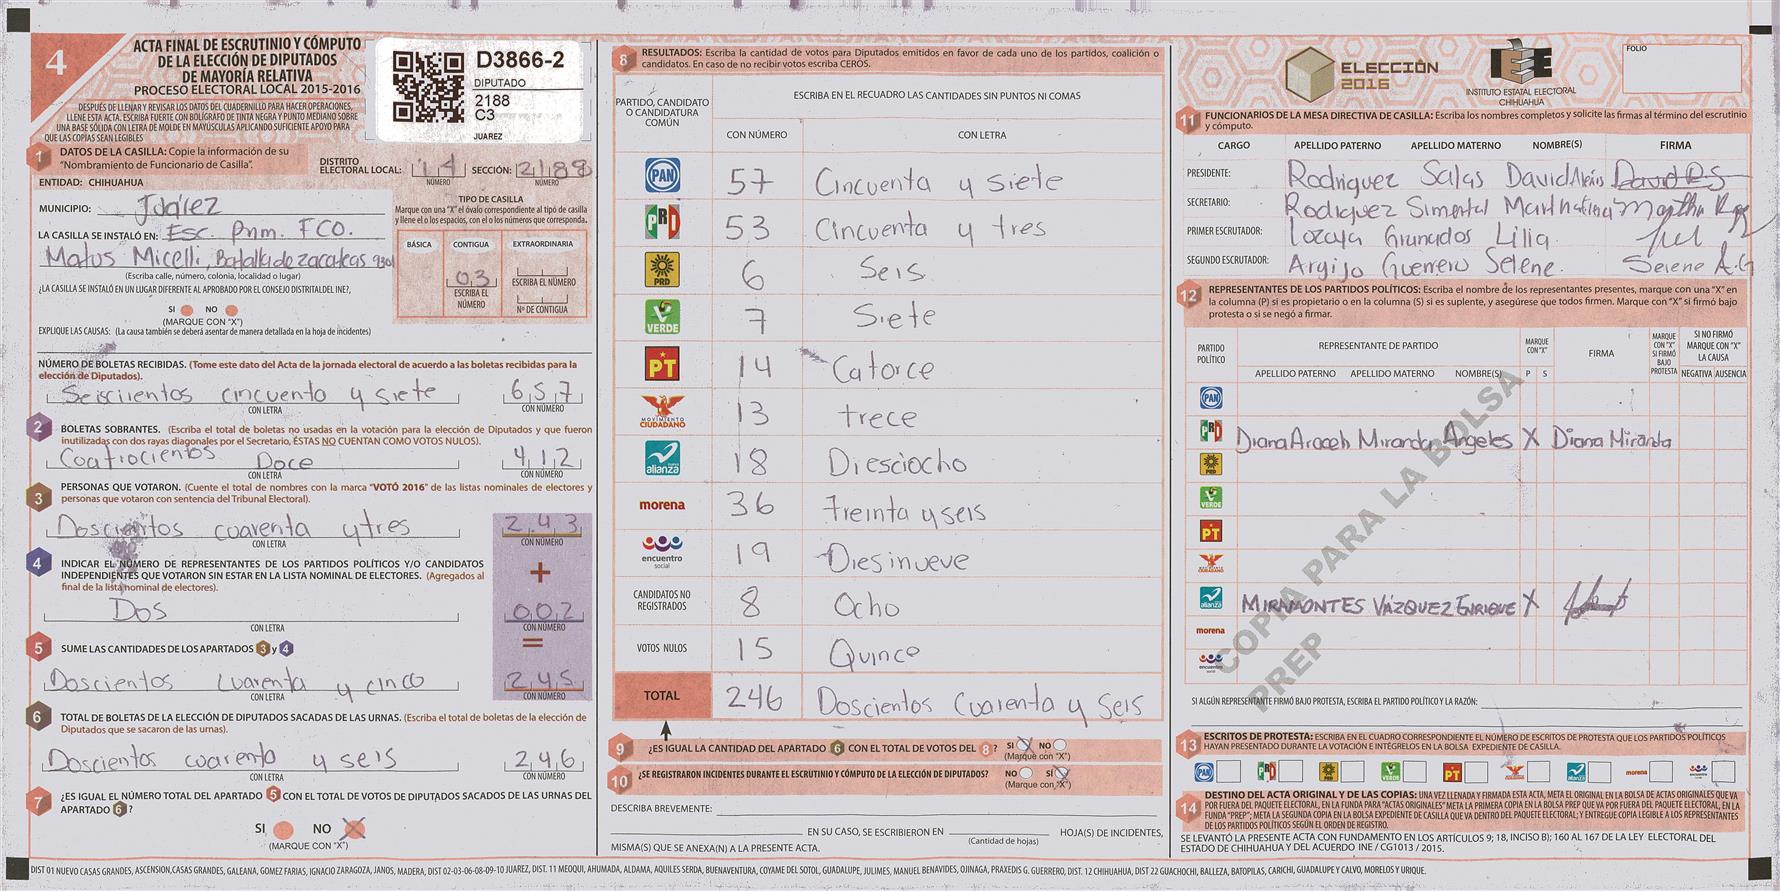 4
ACTA FINAL DE ESCRUTINIO Y CÓMPUTO
DE LA ELECCIÓN DE DIPUTADOS
DE MAYORÍA RELATIVA
PROCESO ELECTORAL LOCAL 2015-2016
DESPUÉS DE LLENAR Y REVISAR LOS DATOS DEL CUADERNILLO PARA HACER OPERACIONES,
LLENE ESTA ACTA. ESCRIBA FUERTE CON BOLÍGRAFO DE TINTA NEGRA Y PUNTO MEDIANO SOBRE
UNA BASE SÓLIDA CON LETRA DE MOLDE EN MAYÚSCULAS APLICANDO SUFICIENTE APOYO PARA
QUE LAS COPIAS SEAN LEGIBLES
D3866-2
DIPUTADO
2188
C3
JUAREZ
1 DATOS DE LA CASILLA: Copie la información de su
"Nombramiento de Funcionario de Casilla".
DISTRITO
ELECTORAL LOCAL: 14 SECCIÓN: 2188
NÚMERO NÚMERO
ENTIDAD: CHIHUAHUA
MUNICIPIO: Juárez
LA CASILLA SE INSTALÓ EN: Esc. Prim. FCO.
Matus Micelli, Batalla de zacatecas 9301
(Escriba calle, número, colonia, localidad o lugar)
¿LA CASILLA SE INSTALÓ EN UN LUGAR DIFERENTE AL APROBADO POR EL CONSEJO DISTRITAL DEL INE?,
SI NO
(MARQUE CON "X")
EXPLIQUE LAS CAUSAS: (La causa también se deberá asentar de manera detallada en la hoja de incidentes)
TIPO DE CASILLA
Marque con una "X" el óvalo correspondiente al tipo de casilla
y llene el o los espacios, con el o los números que corresponda.
BÁSICA CONTIGUA EXTRAORDINARIA
03
ESCRIBA EL NÚMERO
ESCRIBA EL NÚMERO
Nº DE CONTIGUA
NÚMERO DE BOLETAS RECIBIDAS. (Tome este dato del Acta de la jornada electoral de acuerdo a las boletas recibidas para la
elección de Diputados).
Seiscientos cincuenta y siete 657
CON LETRA CON NÚMERO
2 BOLETAS SOBRANTES. (Escriba el total de boletas no usadas en la votación para la elección de Diputados y que fueron
inutilizadas con dos rayas diagonales por el Secretario, ÉSTAS NO CUENTAN COMO VOTOS NULOS).
Coatrocientos Doce 412
CON LETRA CON NÚMERO
3 PERSONAS QUE VOTARON. (Cuente el total de nombres con la marca "VOTÓ 2016" de las listas nominales de electores y
personas que votaron con sentencia del Tribunal Electoral).
Doscientos cuarenta y tres 243
CON LETRA CON NÚMERO
+
4 INDICAR EL NÚMERO DE REPRESENTANTES DE LOS PARTIDOS POLÍTICOS Y/O CANDIDATOS
INDEPENDIENTES QUE VOTARON SIN ESTAR EN LA LISTA NOMINAL DE ELECTORES. (Agregados al
final de la lista nominal de electores).
Dos 002
CON LETRA CON NÚMERO
=
5 SUME LAS CANTIDADES DE LOS APARTADOS 3 y 4
Doscientos cuarenta y cinco 245
CON LETRA CON NÚMERO
6 TOTAL DE BOLETAS DE LA ELECCIÓN DE DIPUTADOS SACADAS DE LAS URNAS. (Escriba el total de boletas de la elección de
Diputados que se sacaron de las urnas).
Doscientos cuarenta y seis 246
CON LETRA CON NÚMERO
7 ¿ES IGUAL EL NÚMERO TOTAL DEL APARTADO 5 CON EL TOTAL DE VOTOS DE DIPUTADOS SACADOS DE LAS URNAS DEL
APARTADO 6?
SI NO X
(MARQUE CON "X")
8 RESULTADOS: Escriba la cantidad de votos para Diputados emitidos en favor de cada uno de los partidos, coalición o
candidatos. En caso de no recibir votos escriba CEROS.
PARTIDO, CANDIDATO
O CANDIDATURA
COMÚN
ESCRIBA EN EL RECUADRO LAS CANTIDADES SIN PUNTOS NI COMAS
CON NÚMERO CON LETRA
PAN 57 Cincuenta y siete
PRI 53 Cincuenta y tres
PRD 6 Seis
VERDE 7 Siete
PT 14 Catorce
MOVIMIENTO CIUDADANO 13 trece
alianza 18 Diesciocho
morena 36 treinta y seis
encuentro social 19 Diesinueve
CANDIDATOS NO REGISTRADOS 8 Ocho
VOTOS NULOS 15 Quince
TOTAL 246 Doscientos Cuarenta y seis
9 ¿ES IGUAL LA CANTIDAD DEL APARTADO 6 CON EL TOTAL DE VOTOS DEL 8? SI X NO
(Marque con "X")
10 ¿SE REGISTRARON INCIDENTES DURANTE EL ESCRUTINIO Y CÓMPUTO DE LA ELECCIÓN DE DIPUTADOS? NO SÍ X
(Marque con "X")
DESCRIBA BREVEMENTE:
EN SU CASO, SE ESCRIBIERON EN HOJA(S) DE INCIDENTES,
(Cantidad de hojas)
MISMA(S) QUE SE ANEXA(N) A LA PRESENTE ACTA.
ELECCIÓN
2016
IEE
INSTITUTO ESTATAL ELECTORAL
CHIHUAHUA
FOLIO
11 FUNCIONARIOS DE LA MESA DIRECTIVA DE CASILLA: Escriba los nombres completos y solicite las firmas al término del escrutinio
y cómputo.
CARGO APELLIDO PATERNO APELLIDO MATERNO NOMBRE(S) FIRMA
PRESIDENTE: Rodriguez Salas David Alexis
SECRETARIO: Rodriguez Simental Martha
PRIMER ESCRUTADOR: Lozoya Granados Lilia
SEGUNDO ESCRUTADOR: Argijo Guerrero Selene. Selene A.G
12 REPRESENTANTES DE LOS PARTIDOS POLÍTICOS: Escriba el nombre de los representantes presentes, marque con una "X" en
la columna (P) si es propietario o en la columna (S) si es suplente, y asegúrese que todos firmen. Marque con "X" si firmó bajo
protesta o si se negó a firmar.
PARTIDO POLÍTICO
REPRESENTANTE DE PARTIDO
APELLIDO PATERNO APELLIDO MATERNO NOMBRE(S)
MARQUE CON "X"
P S
FIRMA
MARQUE CON "X" SI FIRMÓ BAJO PROTESTA
SI NO FIRMÓ MARQUE CON "X" LA CAUSA
NEGATIVA AUSENCIA
PAN
PRI Diana Araceli Miranda Angeles X Diana Miranda
PRD
VERDE
PT
alianza MIRAMONTES VÁZQUEZ ENRIQUE X
morena
COPIA PARA LA BOLSA
PREP
SI ALGÚN REPRESENTANTE FIRMÓ BAJO PROTESTA, ESCRIBA EL PARTIDO POLÍTICO Y LA RAZÓN:
13 ESCRITOS DE PROTESTA: ESCRIBA EN EL CUADRO CORRESPONDIENTE EL NÚMERO DE ESCRITOS DE PROTESTA QUE LOS PARTIDOS POLÍTICOS
HAYAN PRESENTADO DURANTE LA VOTACIÓN E INTÉGRELOS EN LA BOLSA EXPEDIENTE DE CASILLA.
PAN PRI PRD VERDE PT alianza morena
14 DESTINO DEL ACTA ORIGINAL Y DE LAS COPIAS: UNA VEZ LLENADA Y FIRMADA ESTA ACTA, META EL ORIGINAL EN LA BOLSA DE ACTAS ORIGINALES QUE VA
POR FUERA DEL PAQUETE ELECTORAL, EN LA FUNDA PARA "ACTAS ORIGINALES" META LA PRIMERA COPIA EN LA BOLSA PREP QUE VA POR FUERA DEL PAQUETE ELECTORAL, EN LA
FUNDA "PREP"; META LA SEGUNDA COPIA EN LA BOLSA EXPEDIENTE DE CASILLA QUE VA DENTRO DEL PAQUETE ELECTORAL; Y ENTREGUE COPIA LEGIBLE A LOS REPRESENTANTES
DE LOS PARTIDOS POLÍTICOS SEGÚN EL ORDEN DE REGISTRO.
SE LEVANTÓ LA PRESENTE ACTA CON FUNDAMENTO EN LOS ARTÍCULOS 9; 18, INCISO B); 160 AL 167 DE LA LEY ELECTORAL DEL
ESTADO DE CHIHUAHUA Y DEL ACUERDO INE / CG1013 / 2015.
DIST 01 NUEVO CASAS GRANDES, ASCENSION,CASAS GRANDES, GALEANA, GOMEZ FARIAS, IGNACIO ZARAGOZA, JANOS, MADERA, DIST 02-03-06-08-09-10 JUAREZ, DIST. 11 MEOQUI, AHUMADA, ALDAMA, AQUILES SERDA, BUENAVENTURA, COYAME DEL SOTOL, GUADALUPE, JULIMES, MANUEL BENAVIDES, OJINAGA, PRAXEDIS G. GUERRERO, DIST. 12 CHIHUAHUA, DIST 22 GUACHOCHI, BALLEZA, BATOPILAS, CARICHI, GUADALUPE Y CALVO, MORELOS Y URIQUE.